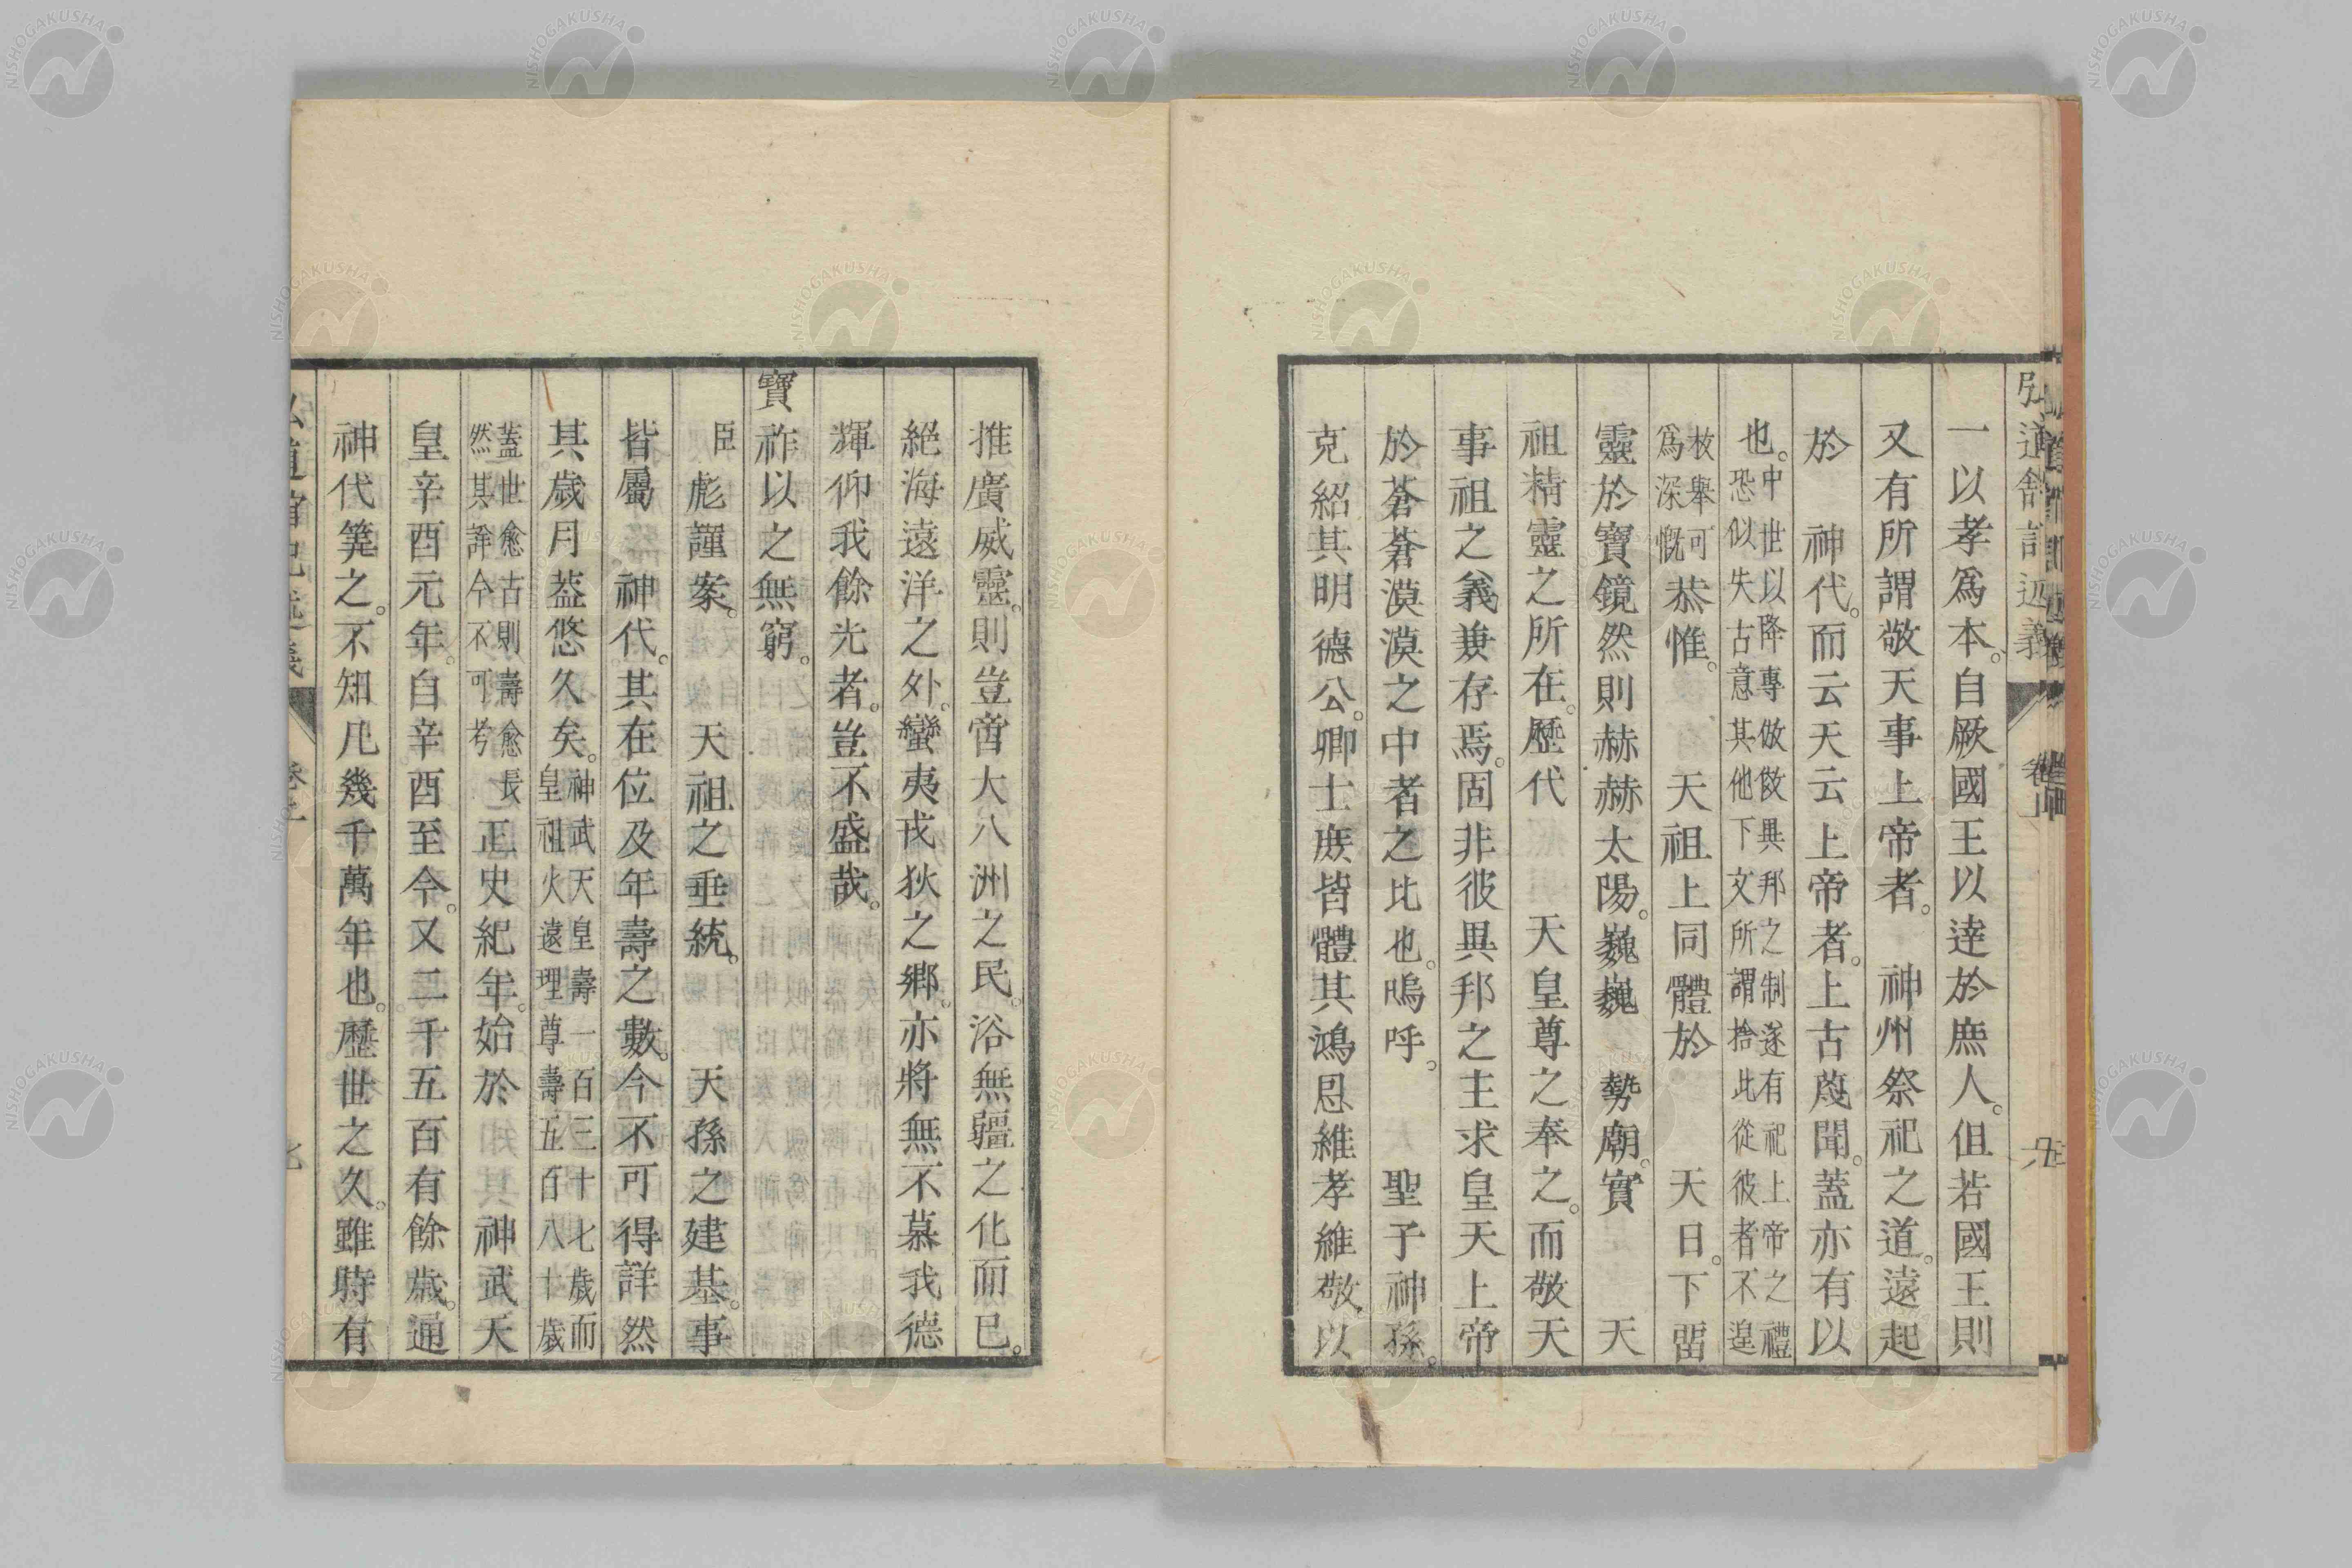 一以孝爲本。自厥國王以達於庶人。但若國王則
又有所謂敬天事上帝者。神州祭祀之道。遠起
於神代。而云天云上帝者。上古蔑聞。蓋亦有以
也。中世以降專倣傚異邦之制遂有祀上帝之禮
恐似失古意其他下文所謂捨此從彼者不遑
枚擧可
爲深慨恭惟。天祖上同體於天日。下畱
靈於寶鏡然則赫赫太陽。巍巍勢廟。實天
祖精靈之所在。歷代天皇尊之奉之。而敬天
事祖之義兼存焉。固非彼異邦之主求皇天上帝
於蒼蒼漠漠之中者之比也。嗚呼。聖子神孫。
克紹其明德公。卿士庶皆體其鴻恩維孝維敬以
推廣威靈。則豈啻大八洲之民。浴無疆之化而已。
絕海遠洋之外。蠻夷戎狄之鄉。亦將無不慕我德
輝仰我餘光者。豈不盛哉。
寶祚以之無窮。
臣彪謹案。天祖之垂統。天孫之建基。事
皆屬神代。其在位及年壽之數。今不可得詳然
其歲月葢悠久矣。神武天皇壽一百三十七歲而
皇祖火遠理尊壽五百八十歲
蓋世愈古則壽愈長
然其詳今不可考正史紀年。始於神武天
皇辛酉元年。自辛酉至今。又二千五百有餘歲。通
神代筭之。不知凡幾千萬年也。歷世之久。雖時有